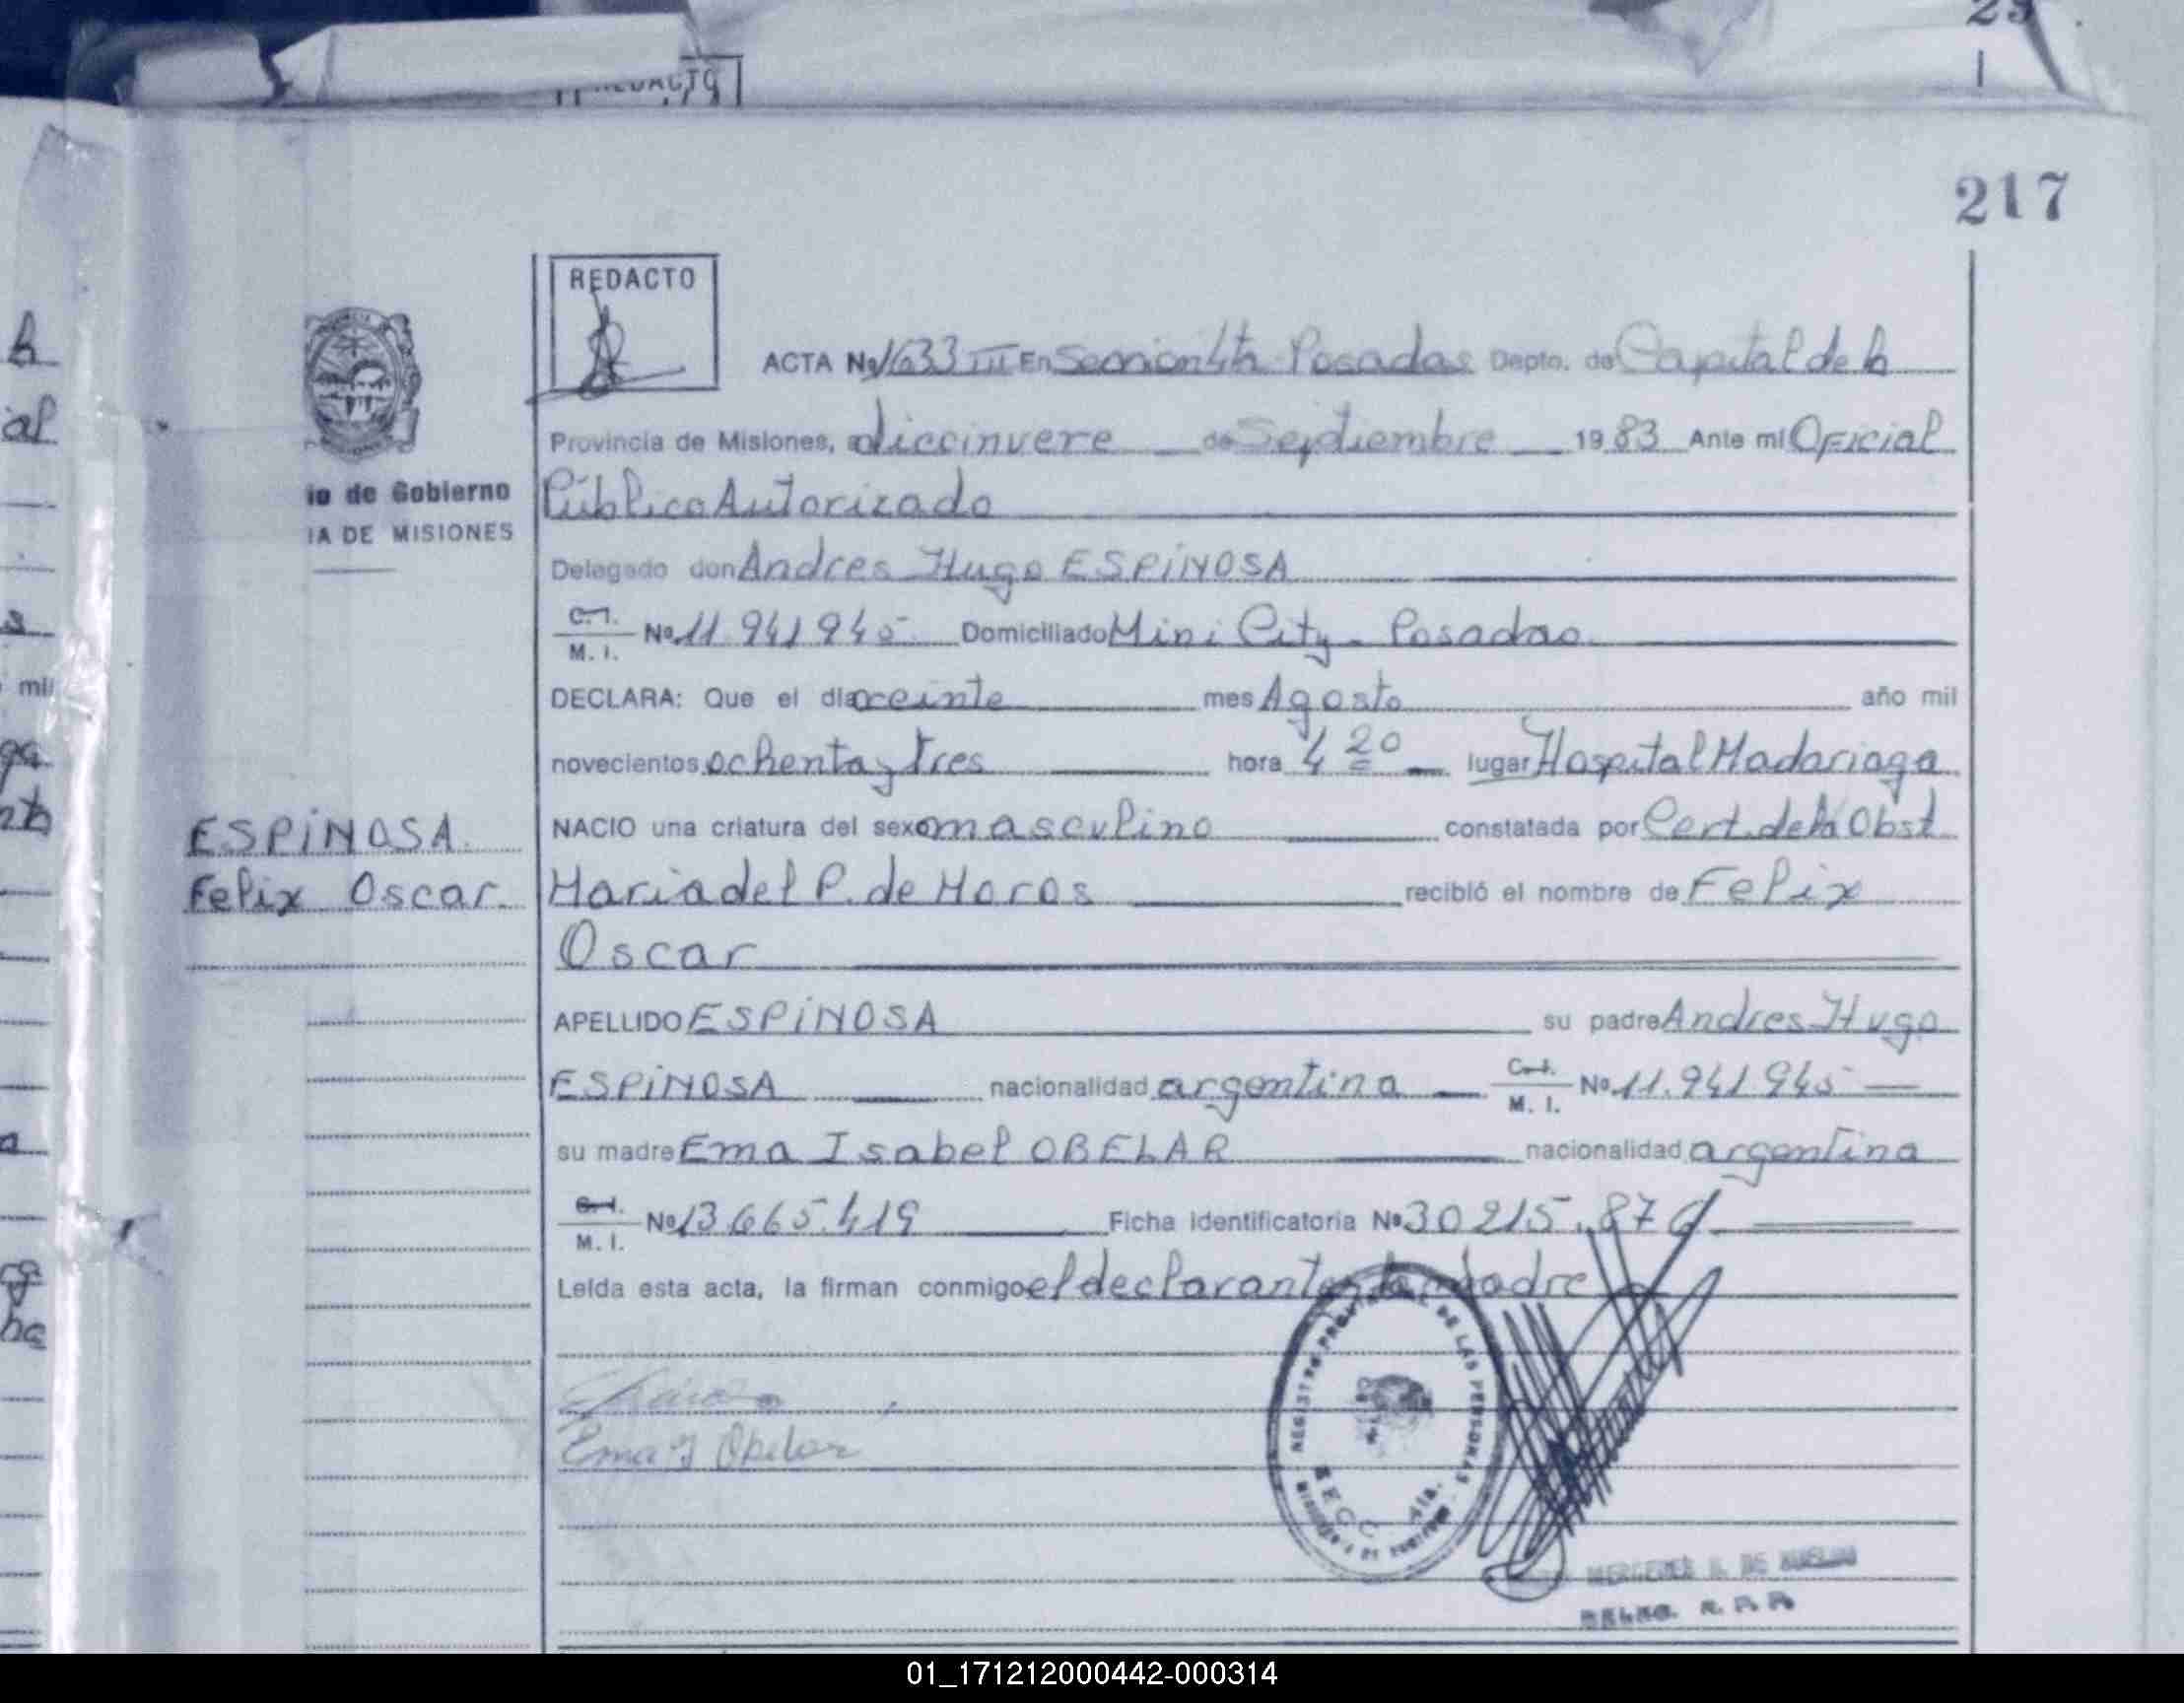 217
REDACTO
ACTA No 1633 III En Seccion 4ta Posadas Depto. de Capital de la
Provincia de Misiones, a diecinueve de Septiembre 1983 Ante mi Oficial
io de Gobierno
Público Autorizado
IA DE MISIONES
Delegado don Andres Hugo ESPINOSA
C.I. M.I. No. 11.941.945 Domiciliado Mini City - Posadas
DECLARA: Que el día veinte mes Agosto año mil
novecientos ochenta y tres hora 4 20 lugar Hospital Madariaga
NACIO una criatura del sexo masculino constatada por Cert. de la Obst
ESPINOSA
Felix Oscar.
Maria del P. de Moros recibió el nombre de Felix
Oscar
APELLIDO ESPINOSA su padre Andres Hugo
ESPINOSA nacionalidad argentina C.I. M.I. No. 11.941.945
su madre Ema Isabel OBELAR nacionalidad argentina
C.I. M.I. No 13.665.419 Ficha identificatoria No 30215.876
Leída esta acta, la firman conmigo el declarante la madre
Ema I Obelar
REGISTRO DE LAS PERSONAS
SECC 4ta.
MERCEDES DE
01_171212000442-000314